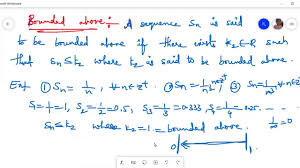 Bounded above:- A sequence Sn is said
to be bounded above if there exists k₂∈R such
that Sn≤k₂ where k₂ is said to be bounded above.
① Sn = 1/n, ∀n∈z⁺, ② Sn=
S₁=1/1=1, S₂=1/2=0.5, S₃=1/3=0.333, S₄=1/4=0.25 ....
Sn≤k₂ where k₂=1 = bounded above. 1/∞=0
0 1